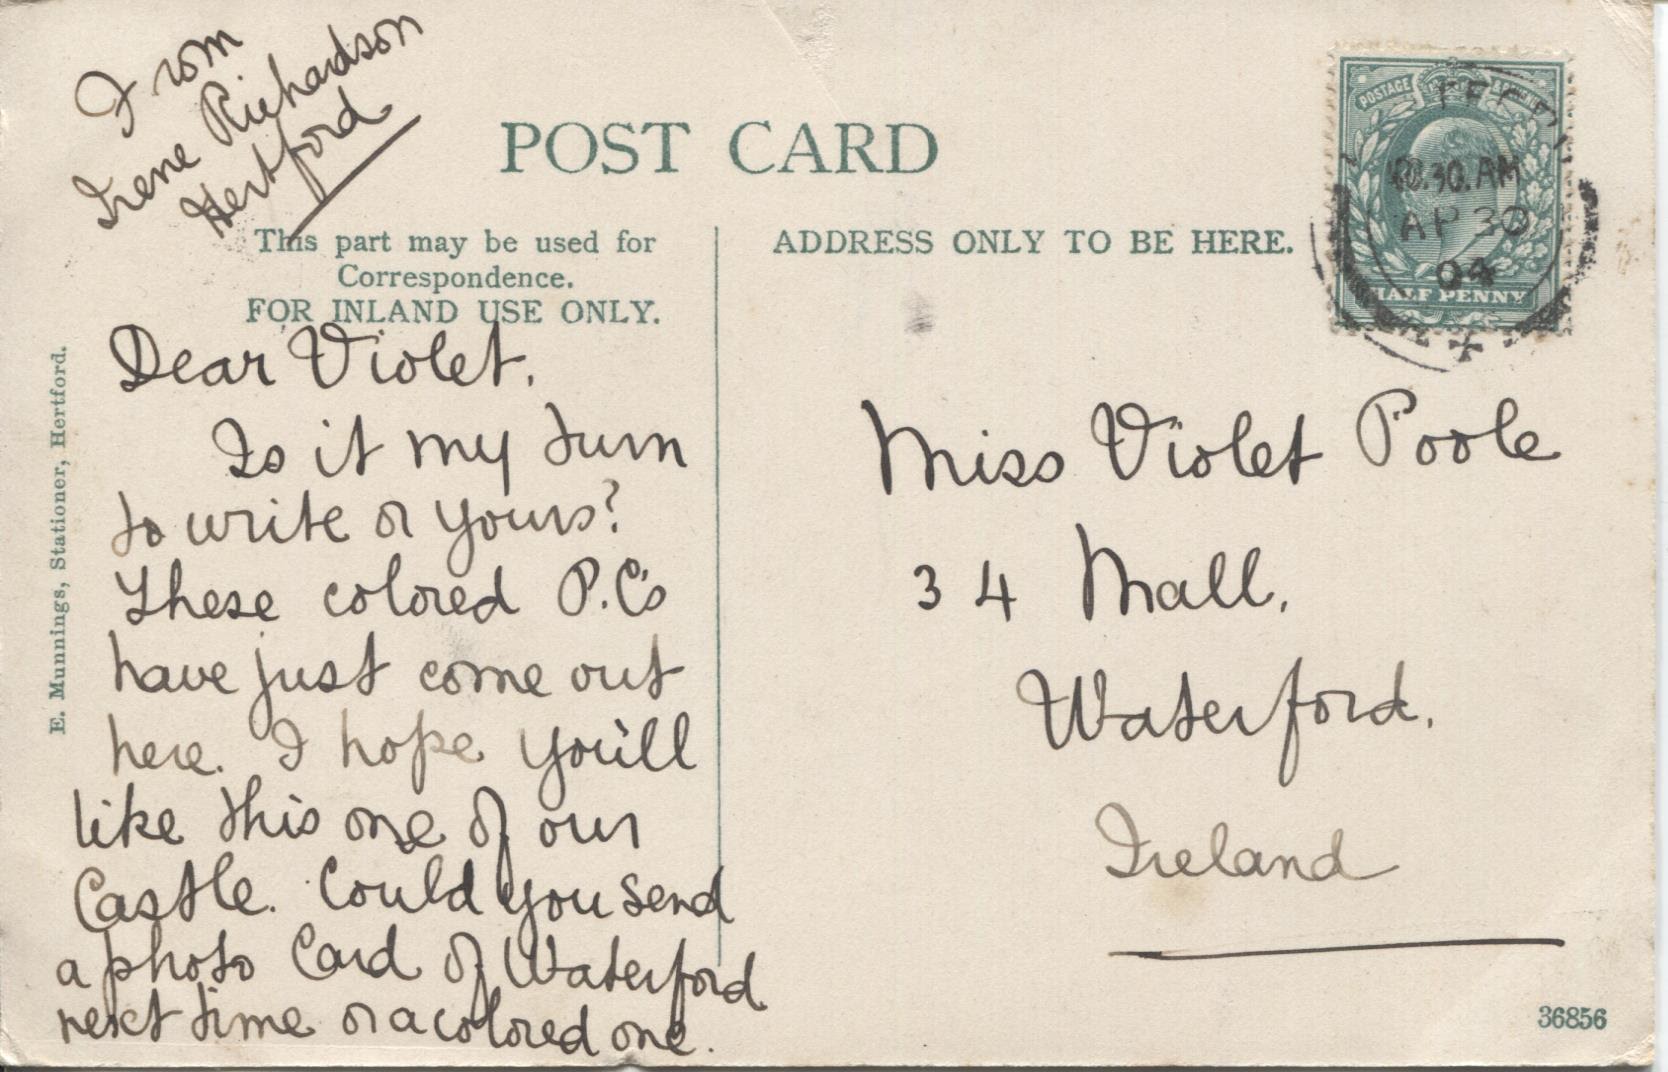 From
Irene Richardson
Hertford
POST CARD
This part may be used for
Correspondence.
FOR INLAND USE ONLY.
ADDRESS ONLY TO BE HERE.
POSTAGE
10.30.AM
AP 30
04
HALF PENNY
E. Munnings, Stationer, Hertford.
Dear Violet.
Is it my turn
to write or yours?
These colored P.C's
have just come out
here. I hope you'll
like this one of our
Castle. Could you send
a photo Card of Waterford
next time or a colored one.
Miss Violet Poole
34 Mall.
Waterford.
Ireland
36856